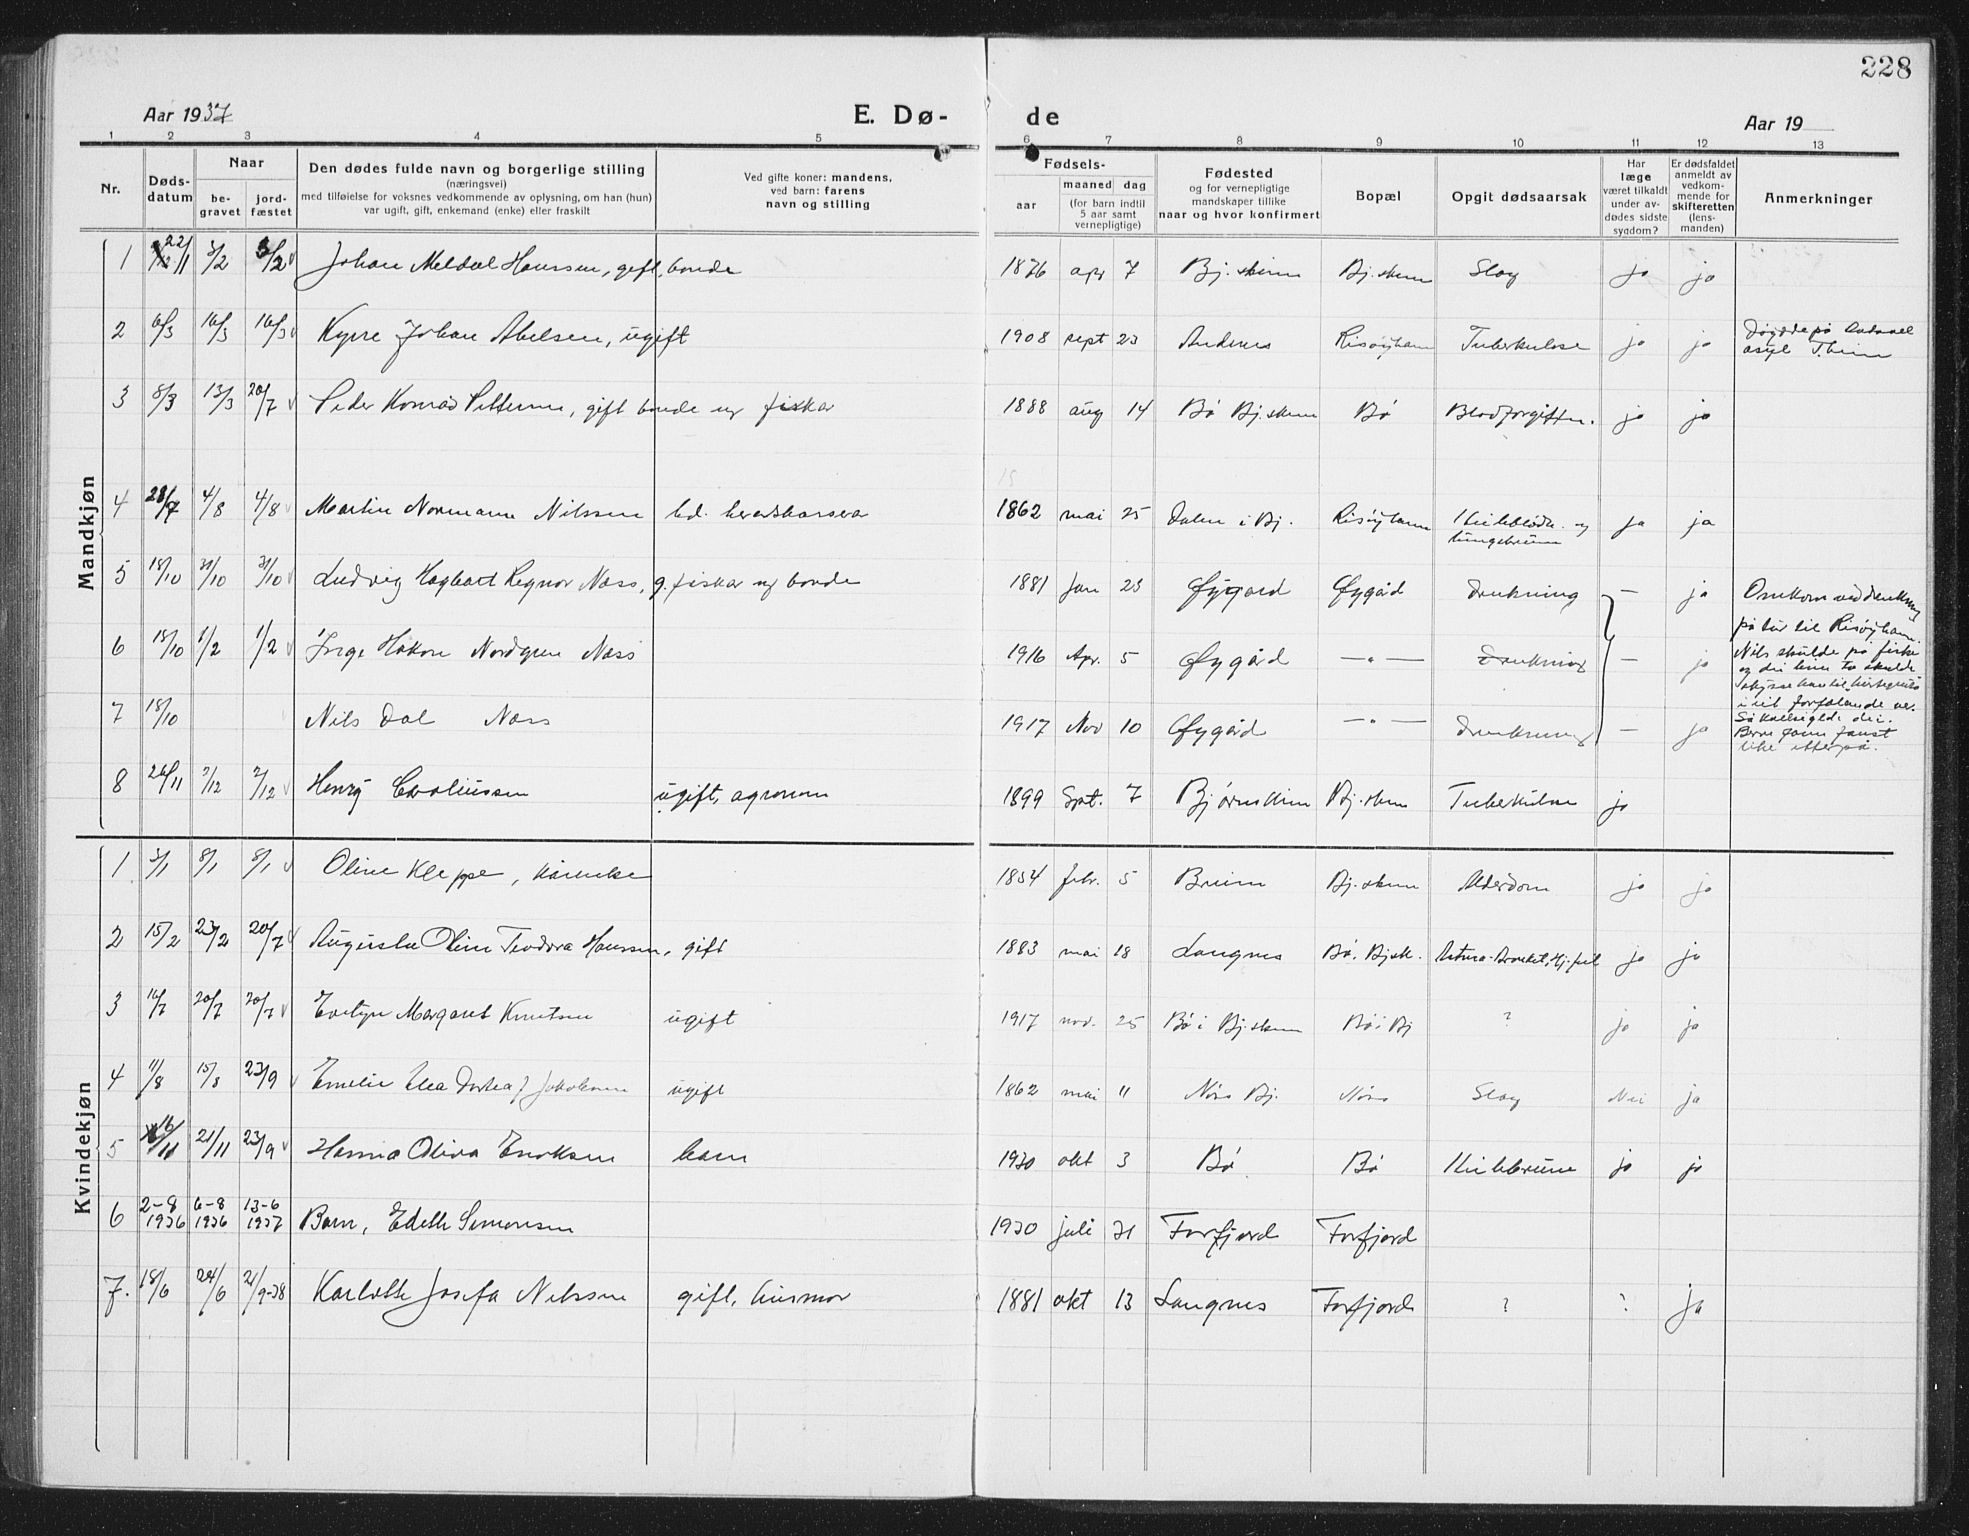 228
Aar 1937
E. Dø-
de
Aar 19
1 2 3 4 5 6 7 8 9 10 11 12 13
Nr.
Døds-
datum
Naar
be-
gravet
jord-
fæstet
Den dødes fulde navn og borgerlige stilling
(næringsvei)
med tilføielse for voksnes vedkommende av oplysning, om han (hun)
var ugift, gift, enkemand (enke) eller fraskilt
Ved gifte koner: mandens,
ved barn: farens
navn og stilling
Fødsels-
aar
maaned dag
(for barn indtil
5 aar samt
vernepligtige)
Fødested
og for vernepligtige
mandskaper tillike
naar og hvor konfirmert
Bopæl
Opgit dødsaarsak
Har
læge
været tilkaldt
under av-
dødes sidste
sygdom?
Er dødsfaldet
anmeldt av
vedkom-
mende for
skifteretten
(lens-
manden)
Anmerkninger
Mandkjøn
1 22/1 3/2 3/2 Johan Meldal Hanssen, gift, bonde 1876 apr 7 Bj.skinn Bj.skinn Slag ja ja
2 6/3 16/3 16/3 Kyrre Johan Abelsen, ugift 1908 sept 23 Andenes Risøyhamn Tuberkulose ja ja Døyde på
asyl
3 8/3 13/3 20/7 Peder Konrad Pettersen, gift bonde og fiskar 1888 aug 14 Bø Bj.skinn Bø Blodforgiftn. ja ja
4 28/7 4/8 4/8 Martin Normann Nilssen hd. heradskassera 1862 mai 25 Dalen i Bj. Risøyhamn og ja ja
5 18/10 31/10 31/10 Ludvig Hagbart Regnor Næss, g. fiskar og bonde 1881 Jan 23 Øygard Øygård Drukning — ja Omkom ved drukning
på tur til Risøyhamn.
6 18/10 1/2 1/2 Inge Håkon Nordgren Næss 1916 Apr. 5 Øygård —"— Drukning — ja Nils skulde på fiske
og dei hine to skulde
7 18/10 Nils Dal Næss 1917 Nov 10 Øygård —"— Drukning — ja
8 26/11 2/12 2/12 Henry Caroliussen ugift, agronom 1899 Spt. 7 Bjørnskinn Bj.skinn Tuberkulose ja
Kvindekjøn
1 3/1 8/1 8/1 Oline Kleppe, kårenke 1854 febr. 5 Bj.skinn Alderdom ja ja
2 15/2 23/2 20/7 Augusta Oline Teodora Hanssen, gift 1883 mai 18 Langnes Bø, Bjsk. ja ja
3 16/7 20/7 20/7 Evelyn Margaret Knutsen ugift 1917 nov. 25 Bø i Bj.skinn Bø i Bj ? ja ja
4 11/8 15/8 23/9 Emelie Elea Dortea J Jakobsen ugift 1862 mai 11 Nøss Bj. Nøss Slag Nei ja
5 16/11 21/11 23/9 Hanna Oliva Enoksen barn 1930 okt 3 Bø Bø ja ja
6 2-8 1936 6-8 1936 13-6 1937 Barn, Edeth Simonsen 1930 juli 31 Forfjord Forfjord
7. 18/6 24/6 21/9-38 Karlotte Josefa Nilssen gift, husmor 1881 okt 13 Langnes Forfjord ? ? ja